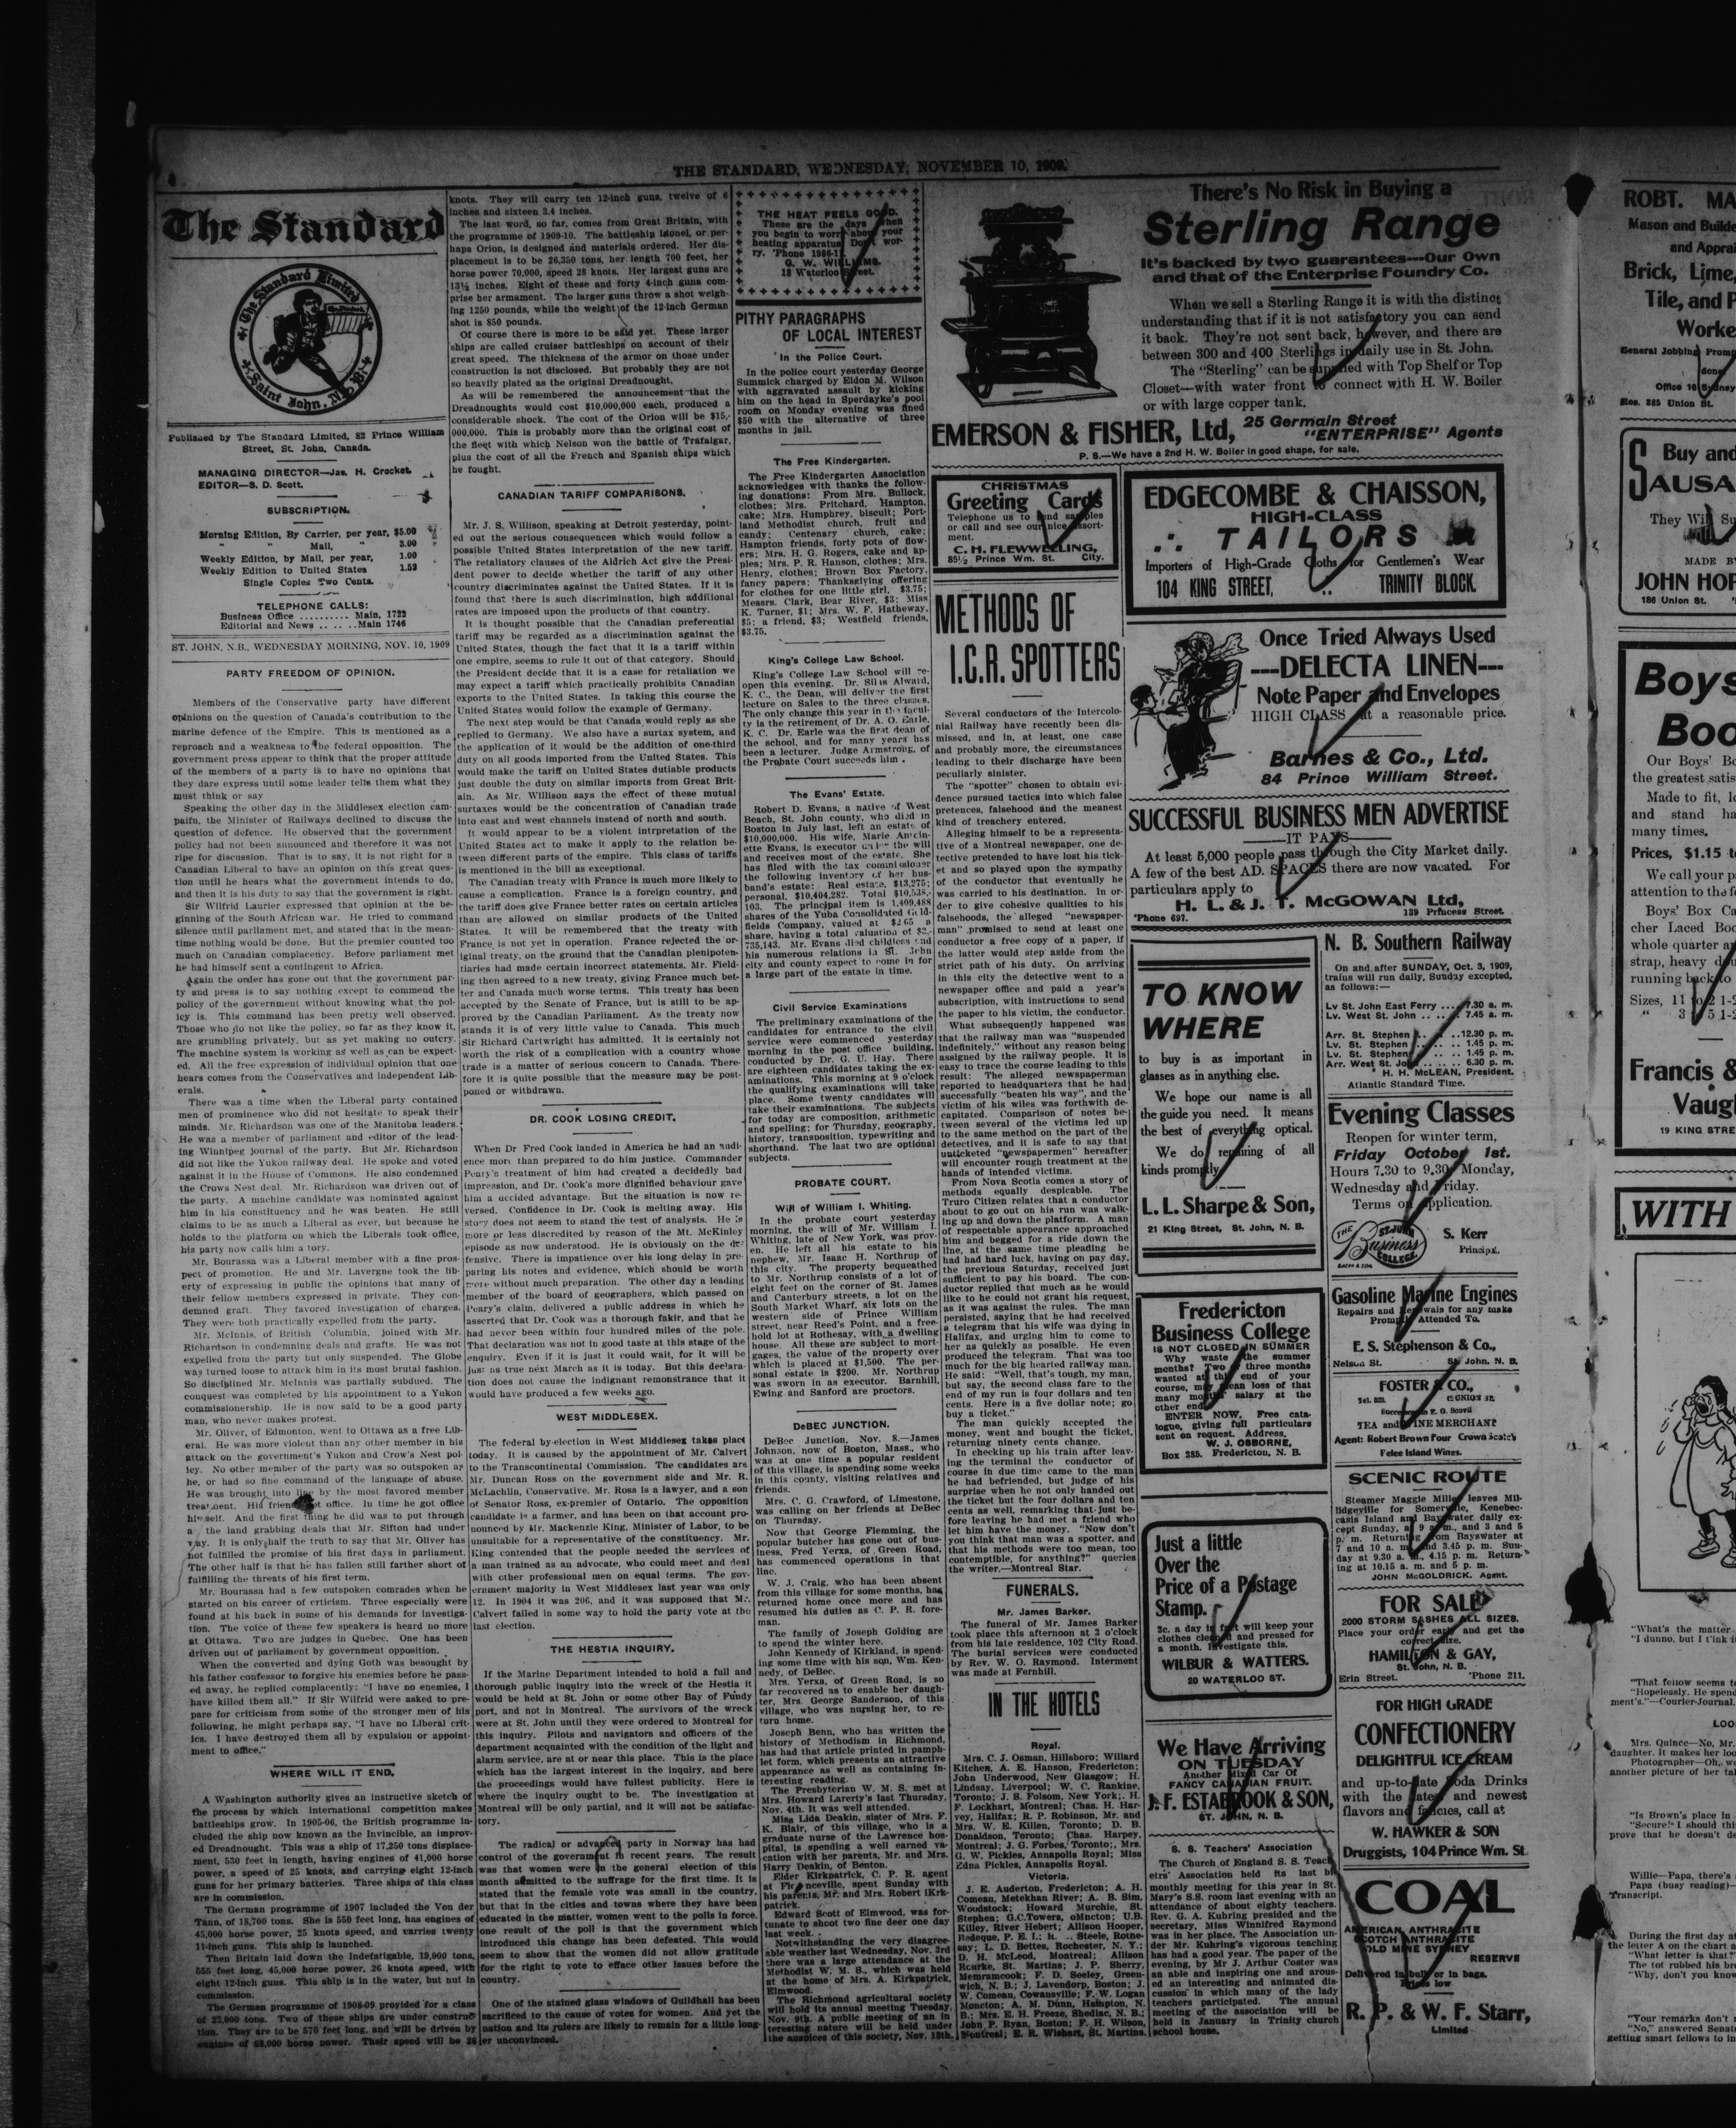 THE STANDARD, WEDNESDAY, NOVEMBER 10, 1909.
The Standard
The Standard Limited
Saint John, N. B.
Published by The Standard Limited, 82 Prince William
Street, St. John, Canada.
MANAGING DIRECTOR—Jas. H. Crocket.
EDITOR—S. D. Scott.
SUBSCRIPTION.
Morning Edition, By Carrier, per year, $5.00
" " Mail, " " 3.00
Weekly Edition, by Mail, per year, 1.00
Weekly Edition to United States 1.52
Single Copies Two Cents.
TELEPHONE CALLS:
Business Office .......... Main, 1722
Editorial and News .. .. ..Main 1746
ST. JOHN, N.B., WEDNESDAY MORNING, NOV. 10, 1909
PARTY FREEDOM OF OPINION.
Members of the Conservative party have different
opinions on the question of Canada's contribution to the
marine defence of the Empire. This is mentioned as a
reproach and a weakness to the federal opposition. The
government press appear to think that the proper attitude
of the members of a party is to have no opinions that
they dare express until some leader tells them what they
must think or say
Speaking the other day in the Middlesex election cam-
paifn, the Minister of Railways declined to discuss the
question of defence. He observed that the government
policy had not been announced and therefore it was not
ripe for discussion. That is to say, it is not right for a
Canadian Liberal to have an opinion on this great ques-
tion until he hears what the government intends to do,
and then it is his duty to say that the government is right.
Sir Wilfrid Laurier expressed that opinion at the be-
ginning of the South African war. He tried to command
silence until parliament met, and stated that in the mean-
time nothing would be done. But the premier counted too
much on Canadian complacency. Before parliament met
he had himself sent a contingent to Africa.
Again the order has gone out that the government par-
ty and press is to say nothing except to commend the
policy of the government without knowing what the pol-
icy is. This command has been pretty well observed.
Those who do not like the policy, so far as they know it,
are grumbling privately, but as yet making no outcry.
The machine system is working as well as can be expect-
ed. All the free expression of individual opinion that one
hears comes from the Conservatives and Independent Lib-
erals.
There was a time when the Liberal party contained
men of prominence who did not hesitate to speak their
minds. Mr. Richardson was one of the Manitoba leaders.
He was a member of parliament and editor of the lead-
ing Winnipeg journal of the party. But Mr. Richardson
did not like the Yukon railway deal. He spoke and voted
against it in the House of Commons. He also condemned
the Crows Nest deal. Mr. Richardson was driven out of
the party. A machine candidate was nominated against
him in his constituency and he was beaten. He still
claims to be as much a Liberal as ever, but because he
holds to the platform on which the Liberals took office,
his party now calls him a tory.
Mr. Bourassa was a Liberal member with a fine pros-
pect of promotion. He and Mr. Lavergne took the lib-
erty of expressing in public the opinions that many of
their fellow members expressed in private. They con-
demned graft. They favored investigation of charges.
They were both practically expelled from the party.
Mr. McInnis, of British Columbia, joined with Mr.
Richardson in condemning deals and grafts. He was not
expelled from the party but only suspended. The Globe
was turned loose to attack him in its most brutal fashion.
So disciplined Mr. McInnis was partially subdued. The
conquest was completed by his appointment to a Yukon
commissionership. He is now said to be a good party
man, who never makes protest.
Mr. Oliver, of Edmonton, went to Ottawa as a free Lib-
eral. He was more violent than any other member in his
attack on the government's Yukon and Crow's Nest pol-
icy. No other member of the party was so outspoken as
he, or had so fine command of the language of abuse.
He was brought into line by the most favored member
treatment. His friends got office. In time he got office
himself. And the first thing he did was to put through
a the land grabbing deals that Mr. Sifton had under
way. It is only half the truth to say that Mr. Oliver has
not fulfilled the promise of his first days in parliament.
The other half is that he has fallen still farther short of
fulfilling the threats of his first term.
Mr. Bourassa had a few outspoken comrades when he
started on his career of crticism. Three especially were
found at his back in some of his demands for investiga-
tion. The voice of these few speakers is heard no more
at Ottawa. Two are judges in Quebec. One has been
driven out of parliament by government opposition.
When the converted and dying Goth was besought by
his father confessor to forgive his enemies before he pass-
ed away, he replied complacently: "I have no enemies, I
have killed them all." If Sir Wilfrid were asked to pre-
pare for criticism from some of the stronger men of his
following, he might perhaps say, "I have no Liberal crit-
ics. I have destroyed them all by expulsion or appoint-
ment to office."
WHERE WILL IT END.
A Washington authority gives an instructive sketch of
the process by which international competition makes
battleships grow. In 1905-06, the British programme in-
cluded the ship now known as the Invincible, an improv-
ed Dreadnought. This was a ship of 17,250 tons displace-
ment, 530 feet in length, having engines of 41,000 horse
power, a speed of 25 knots, and carrying eight 12-inch
guns for her primary batteries. Three ships of this class
are in commission.
The German programme of 1907 included the Von der
Tann, of 18,700 tons. She is 550 feet long, has engines of
45,000 horse power, 25 knots speed, and carries twenty
11-inch guns. This ship is launched.
Then Britain laid down the Indefatigable, 19,000 tons,
555 feet long, 45,000 horse power, 26 knots speed, with
eight 12-inch guns. This ship is in the water, but nut in
commission.
The German programme of 1908-09 provided for a class
of 22,000 tons. Two of these ships are under construc-
tion. They are to be 570 feet long, and will be driven by
engines of 68,000 horse power. Their speed will be 28
knots. They will carry ten 12-inch guns, twelve of 6
inches and sixteen 3.4 inches.
The last word, so far, comes from Great Britain, with
the programme of 1909-10. The battleship Lionel, or per-
haps Orion, is designed and materials ordered. Her dis-
placement is to be 26,350 tons, her length 700 feet, her
horse power 70,000, speed 28 knots. Her largest guns are
13½ inches. Eight of these and forty 4-inch guns com-
prise her armament. The larger guns throw a shot weigh-
ing 1250 pounds, while the weight of the 12-inch German
shot is 850 pounds.
Of course there is more to be said yet. These larger
ships are called cruiser battleships on account of their
great speed. The thickness of the armor on those under
construction is not disclosed. But probably they are not
so heavily plated as the original Dreadnought.
As will be remembered the announcement that the
Dreadnoughts would cost $10,000,000 each, produced a
considerable shock. The cost of the Orion will be $15,-
000,000. This is probably more than the original cost of
the fleet with which Nelson won the battle of Trafalgar,
plus the cost of all the French and Spanish ships which
he fought.
CANADIAN TARIFF COMPARISONS.
Mr. J. S. Willison, speaking at Detroit yesterday, point-
ed out the serious consequences which would follow a
possible United States interpretation of the new tariff.
The retaliatory clauses of the Aldrich Act give the Presi-
dent power to decide whether the tariff of any other
country discriminates against the United States. If it is
found that there is such discrimination, high additional
rates are imposed upon the products of that country.
It is thought possible that the Canadian preferential
tariff may be regarded as a discrimination against the
United States, though the fact that it is a tariff within
one empire, seems to rule it out of that category. Should
the President decide that it is a case for retaliation we
may expect a tariff which practically prohibits Canadian
exports to the United States. In taking this course the
United States would follow the example of Germany.
The next step would be that Canada would reply as she
replied to Germany. We also have a surtax system, and
the application of it would be the addition of one-third
duty on all goods imported from the United States. This
would make the tariff on United States dutiable products
just double the duty on similar imports from Great Brit-
ain. As Mr. Willison says the effect of these mutual
surtaxes would be the concentration of Canadian trade
into east and west channels instead of north and south.
It would appear to be a violent intrpretation of the
United States act to make it apply to the relation be-
tween different parts of the empire. This class of tariffs
is mentioned in the bill as exceptional.
The Canadian treaty with France is much more likely to
cause a complication. France is a foreign country, and
the tariff does give France better rates on certain articles
than are allowed on similar products of the United
States. It will be remembered that the treaty with
France is not yet in operation. France rejected the or-
iginal treaty, on the ground that the Canadian plenipoten-
tiaries had made certain incorrect statements. Mr. Field-
ing then agreed to a new treaty, giving France much bet-
ter and Canada much worse terms. This treaty has been
accepted by the Senate of France, but is still to be ap-
proved by the Canadian Parliament. As the treaty now
stands it is of very little value to Canada. This much
Sir Richard Cartwright has admitted. It is certainly not
worth the risk of a complication with a country whose
trade is a matter of serious concern to Canada. There-
fore it is quite possible that the measure may be post-
poned or withdrawn.
DR. COOK LOSING CREDIT.
When Dr Fred Cook landed in America he had an audi-
ence more than prepared to do him justice. Commander
Peary's treatment of him had created a decidedly bad
impression, and Dr. Cook's more dignified behaviour gave
him a decided advantage. But the situation is now re-
versed. Confidence in Dr. Cook is melting away. His
story does not seem to stand the test of analysis. He is
more or less discredited by reason of the Mt. McKinley
episode as now understood. He is obviously on the de-
fensive. There is impatience over his long delay in pre-
paring his notes and evidence, which should be worth
more without much preparation. The other day a leading
member of the board of geographers, which passed on
Peary's claim, delivered a public address in which he
asserted that Dr. Cook was a thorough fakir, and that he
had never been within four hundred miles of the pole.
That declaration was not in good taste at this stage of the
enquiry. Even if it is just it could wait, for it will be
just as true next March as it is today. But this declara-
tion does not cause the indignant remonstrance that it
would have produced a few weeks ago.
WEST MIDDLESEX.
The federal by-election in West Middlesex takes place
today. It is caused by the appointment of Mr. Calvert
to the Transcontinental Commission. The candidates are
Mr. Duncan Ross on the government side and Mr. R.
McLachlin, Conservative. Mr. Ross is a lawyer, and a son
of Senator Ross, ex-premier of Ontario. The opposition
candidate is a farmer, and has been on that account pro-
nounced by Mr. Mackenzie King, Minister of Labor, to be
unsuitable for a representative of the constituency. Mr.
King contended that the people needed the services of
a man trained as an advocate, who could meet and deal
with other professional men on equal terms. The gov-
ernment majority in West Middlesex last year was only
12. In 1904 it was 206, and it was supposed that Mr.
Calvert failed in some way to hold the party vote at the
last election.
THE HESTIA INQUIRY.
If the Marine Department intended to hold a full and
thorough public inquiry into the wreck of the Hestia it
would be held at St. John or some other Bay of Fundy
port, and not in Montreal. The survivors of the wreck
were at St. John until they were ordered to Montreal for
this inquiry. Pilots and navigators and officers of the
department acquainted with the condition of the light and
alarm service, are at or near this place. This is the place
which has the largest interest in the inquiry, and here
the proceedings would have fullest publicity. Here is
where the inquiry ought to be. The investigation at
Montreal will be only partial, and it will not be satisfac-
tory.
The radical or advanced party in Norway has had
control of the government in recent years. The result
was that women were in the general election of this
month admitted to the suffrage for the first time. It is
stated that the female vote was small in the country,
but that in the cities and towns where they have been
educated in the matter, women went to the polls in force.
one result of the poll is that the government which
introduced this change has been defeated. This would
seem to show that the women did not allow gratitude
for the right to vote to efface other issues before the
country.
One of the stained glass windows of Guildhall has been
sacrificed to the cause of votes for women. And yet the
nation and its rulers are likely to remain for a little long-
er unconvinced.
THE HEAT FEELS GOOD.
These are the days when
you begin to worry about your
heating apparatus Don't wor-
ry. 'Phone 1986-1
G. W. WILLIAMS.
18 Waterloo Street.
PITHY PARAGRAPHS
OF LOCAL INTEREST
In the Police Court.
In the police court yesterday George
Summick charged by Eldon M. Wilson
with aggravated assault by kicking
him on the head in Sperdayke's pool
room on Monday evening was fined
$50 with the alternative of three
months in jail.
The Free Kindergarten.
The Free Kindergarten Association
acknowledges with thanks the follow-
ing donations: From Mrs. Bullock,
clothes; Mrs. Pritchard, Hampton,
cake; Mrs. Humphrey, biscuit; Port-
land Methodist church, fruit and
candy; Centenary church, cake;
Hampton friends, forty pots of flow-
ers; Mrs. H. G. Rogers, cake and ap-
ples; Mrs. P. R. Hanson, clothes; Mrs.
Henry, clothes; Brown Box Factory,
fancy papers; Thanksgiving offering
for clothes for one little girl, $3.75;
Messrs. Clark, Bear River, $3; Miss
K. Turner, $1; Mrs. W. F. Hatheway,
$5; a friend, $3; Westfield friends,
$3.75.
King's College Law School.
King's College Law School will re-
open this evening. Dr. Silas Alward,
K. C., the Dean, will deliver the first
lecture on Sales to the three classes.
The only change this year in the facul-
ty is the retirement of Dr. A. O. Earle,
K. C. Dr. Earle was the first dean of
the school, and for many years has
been a lecturer. Judge Armstrong, of
the Probate Court succeeds him .
The Evans' Estate.
Robert D. Evans, a native of West
Beach, St. John county, who died in
Boston in July last, left an estate of
$10,000,000. His wife, Marie Antoin-
ette Evans, is executor under the will
and receives most of the estate. She
has filed with the tax commissioner
the following inventory of her hus-
band's estate: Real estate, $13,275;
personal, $10,404,282. Total $10,538,-
103. The principal item is 1,409,488
shares of the Yuba Consolidated Gold-
fields Company, valued at $2.65 a
share, having a total valuation of $3,-
735,143. Mr. Evans died childless and
his numerous relations in St. John
city and county expect to come in for
a large part of the estate in time.
Civil Service Examinations
The preliminary examinations of the
candidates for entrance to the civil
service were commenced yesterday
morning in the post office building,
conducted by Dr. G. U. Hay. There
are eighteen candidates taking the ex-
aminations. This morning at 9 o'clock
the qualifying examinations will take
place. Some twenty candidates will
take their examinations. The subjects
for today are composition, arithmetic
and spelling; for Thursday, geography,
history, transposition, typewriting and
shorthand. The last two are optional
subjects.
PROBATE COURT.
Will of William I. Whiting.
In the probate court yesterday
morning, the will of Mr. William I.
Whiting, late of New York, was prov-
en. He left all his estate to his
nephew, Mr. Isaac H. Northrup of
this city. The property bequeathed
to Mr. Northrup consists of a lot of
eight feet on the corner of St. James
and Canterbury streets, a lot on the
South Market Wharf, six lots on the
western side of Prince William
street, near Reed's Point, and a free-
hold lot at Rothesay, with a dwelling
house. All these are subject to mort-
gages, the value of the property over
which is placed at $1,500. The per-
sonal estate is $200. Mr. Northrup
was sworn in as executor. Barnhill,
Ewing and Sanford are proctors.
DeBEC JUNCTION.
DeBec Junction, Nov. 8.—James
Johnson, now of Boston, Mass., who
was at one time a popular resident
of this village, is spending some weeks
in this county, visiting relatives and
friends.
Mrs. C. G. Crawford, of Limestone,
was calling on her friends at DeBec
on Thursday.
Now that George Flemming, the
popular butcher has gone out of bus-
iness, Fred Yerxa, of Green Road,
has commenced operations in that
line.
W. J. Craig, who has been absent
from this village for some months, has
returned home once more and has
resumed his duties as C. P. R. fore-
man.
The family of Joseph Golding are
to spend the winter here.
John Kennedy of Kirkland, is spend-
ing some time with his son, Wm. Ken-
nedy, of DeBec.
Mrs. Yerxa, of Green Road, is so
far recovered as to enable her daugh-
ter, Mrs. George Sanderson, of this
village, who was nursing her, to re-
turn home.
Joseph Benn, who has written the
history of Methodism in Richmond,
has had that article printed in pamph-
let form, which presents an attractive
appearance as well as containing in-
teresting reading.
The Presbyterian W. M. S. met at
Mrs. Howard Larerty's last Thursday,
Nov. 4th. It was well attended.
Miss Lida Deakin, sister of Mrs. F.
K. Blair, of this village, who is a
graduate nurse of the Lawrence hos-
pital, is spending a well earned va-
cation with her parents, Mr. and Mrs.
Harry Deakin, of Benton.
Elder Kirkpatrick, C. P. R. agent
at Florenceville, spent Sunday with
his parents, Mr. and Mrs. Robert iKrk-
patrick.
Edward Scott of Elmwood, was for-
tunate to shoot two fine deer one day
last week.
Notwithstanding the very disagree-
able weather last Wednesday, Nov. 3rd
there was a large attendance at the
Methodist W. M. S., which was held
at the home of Mrs. A. Kirkpatrick,
Elmwood.
The Richmond agricultural society
will hold its annual meeting Tuesday,
Nov. 9th. A public meeting of an in
teresting nature will be held under
the auspices of this society, Nov. 13th.
There's No Risk in Buying a
Sterling Range
It's backed by two guarantees---Our Own
and that of the Enterprise Foundry Co.
When we sell a Sterling Range it is with the distinct
understanding that if it is not satisfactory you can send
it back. They're not sent back, however, and there are
between 300 and 400 Sterlings in daily use in St. John.
The "Sterling" can be supplied with Top Shelf or Top
Closet—with water front to connect with H. W. Boiler
or with large copper tank.
EMERSON & FISHER, Ltd, 25 Germain Street
"ENTERPRISE" Agents
P. S.—We have a 2nd H. W. Boiler in good shape, for sale.
CHRISTMAS
Greeting Cards
Telephone us to send samples
or call and see our nice assort-
ment.
C. H. FLEWWELLING,
85½ Prince Wm. St. City.
METHODS OF
I.C.R. SPOTTERS
Several conductors of the Intercolo-
nial Railway have recently been dis-
missed, and in, at least, one case
and probably more, the circumstances
leading to their discharge have been
peculiarly sinister.
The "spotter" chosen to obtain evi-
dence pursued tactics into which false
pretences, falsehood and the meanest
kind of treachery entered.
Alleging himself to be a representa-
tive of a Montreal newspaper, one de-
tective pretended to have lost his tick-
et and so played upon the sympathy
of the conductor that eventually he
was carried to his destination. In or-
der to give cohesive qualities to his
falsehoods, the alleged "newspaper-
man" promised to send at least one
conductor a free copy of a paper, if
the latter would step aside from the
strict path of his duty. On arriving
in this city the detective went to a
newspaper office and paid a year's
subscription, with instructions to send
the paper to his victim, the conductor.
What subsequently happened was
that the railway man was "suspended
indefinitely," without any reason being
assigned by the railway people. It is
easy to trace the course leading to this
result: The alleged newspaperman
reported to headquarters that he had
successfully "beaten his way", and the
victim of his wiles was forthwith de-
capitated. Comparison of notes be-
tween several of the victims led up
to the same method on the part of the
detectives, and it is safe to say that
unticketed "newspapermen" hereafter
will encounter rough treatment at the
hands of intended victims.
From Nova Scotia comes a story of
methods equally despicable. The
Truro Citizen relates that a conductor
about to go out on his run was walk-
ing up and down the platform. A man
of respectable appearance approached
him and begged for a ride down the
line, at the same time pleading he
had had hard luck, having on pay day,
the previous Saturday, received just
sufficient to pay his board. The con-
ductor replied that much as he would
like to he could not grant his request,
as it was against the rules. The man
persisted, saying that he had received
a telegram that his wife was dying in
Halifax, and urging him to come to
her as quickly as possible. He even
produced the telegram. That was too
much for the big hearted railway man.
He said: "Well, that's tough, my man,
but say, the second class fare to the
end of my run is four dollars and ten
cents. Here is a five dollar note; go
buy a ticket."
The man quickly accepted the
money, went and bought the ticket,
returning ninety cents change.
In checking up his train after leav-
ing the terminal the conductor of
course in due time came to the man
he had befriended, but judge of his
surprise when he not only handed out
the ticket but the four dollars and ten
cents as well, remarking that just be-
fore leaving he had met a friend who
let him have the money. "Now don't
you think that man was a spotter, and
that his methods were too mean, too
contemptible, for anything?" queries
the writer.—Montreal Star.
FUNERALS.
Mr. James Barker.
The funeral of Mr. James Barker
took place this afternoon at 3 o'clock
from his late residence, 102 City Road.
The burial services were conducted
by Rev. W. O. Raymond. Interment
was made at Fernhill.
IN THE HOTELS
Royal.
Mrs. C. J. Osman, Hillsboro; Willard
Kitchen, A. E. Hanson, Fredericton;
John Underwood, New Glasgow; H.
Lindsay, Liverpool; W. C. Rankine,
Toronto; J. S. Folsom, New York; H.
F. Lockhart, Montreal; Chas. H. Har-
vey, Halifax; R. P. Robinson, Mr. and
Mrs. W. E. Killen, Toronto; D. B.
Donaldson, Toronto; Chas. Harpey,
Montreal; J. G. Forbes, Toronto; Mrs.
G. W. Pickles, Annapolis Royal; Miss
Edna Pickles, Annapolis Royal.
Victoria.
J. E. Auderton, Fredericton; A. H.
Comeau, Metekhan River; A. B. Sim,
Woodstock; Howard Murchie, St.
Stephen; G.C.Towers, oMncton; U.B.
Killey, River Hebert; Allison Hooper,
Redeque, P. E. I.; R. .. Steele, Rothe-
say; L. D. Bettes, Rochester, N. Y.;
D. H. McLeod, Montreal; Allison
Rourke, St. Martins; J. P. Sherry,
Memramcook; F. D. Seeley, Green-
wich, N. B.; J. Lavendorp, Boston; J.
W. Comeau, Cowansville; F. W. Logan
Moncton; A. M. Dunn, Hampton, N.
B.; Mrs. E. H. Freeze, Shediac, N. B.;
John P. Ryan, Boston; F. H. Wilson,
Montreal; E. R. Wishart, St. Martins.
EDGECOMBE & CHAISSON,
HIGH-CLASS
TAILORS
Importers of High-Grade Cloths for Gentlemen's Wear
104 KING STREET, .. TRINITY BLOCK.
Once Tried Always Used
---DELECTA LINEN---
Note Paper and Envelopes
HIGH CLASS at a reasonable price.
Barnes & Co., Ltd.
84 Prince William Street.
SUCCESSFUL BUSINESS MEN ADVERTISE
—IT PAYS—
At least 5,000 people pass through the City Market daily.
A few of the best AD. SPACES there are now vacated. For
particulars apply to
H. L. & J. T. McGOWAN Ltd,
'Phone 697. 139 Princess Street.
TO KNOW
WHERE
to buy is as important in
glasses as in anything else.
We hope our name is all
the guide you need. It means
the best of everything optical.
We do repairing of all
kinds promptly.
L. L. Sharpe & Son,
21 King Street, St. John, N. B.
Fredericton
Business College
IS NOT CLOSED IN SUMMER
Why waste the summer
months? Two or three months
wasted at this end of your
course, may mean loss of that
many months' salary at the
other end.
ENTER NOW. Free cata-
logue, giving full particulars
sent on request. Address,
W. J. OSBORNE,
Box 385. Fredericton, N. B.
Just a little
Over the
Price of a Postage
Stamp.
3c. a day in fact will keep your
clothes cleaned and pressed for
a month. Investigate this.
WILBUR & WATTERS.
20 WATERLOO ST.
We Have Arriving
ON TUESDAY
Another Mixed Car Of
FANCY CANADIAN FRUIT.
J. F. ESTABROOK & SON,
ST. JOHN, N. B.
S. S. Teachers' Association
The Church of England S. S. Teach
ers' Association held its last bi
monthly meeting for this year in St.
Mary's S.S. room last evening with an
attendance of about eighty teachers.
Rev. G. A. Kuhring presided and the
secretary, Miss Winnifred Raymond
was in her place. The Association un-
der Mr. Kuhring's vigorous teaching
has had a good year. The paper of the
evening, by Mr J. Arthur Coster was
an able and inspiring one and arous-
ed an interesting and animated dis-
cussion in which many of the lady
teachers participated. The annual
meeting of the association will be
held in January in Trinity church
school house.
N. B. Southern Railway
On and after SUNDAY, Oct. 3, 1909,
trains will run daily, Sunday excepted,
as follows:—
Lv St. John East Ferry .. .. 7.30 a. m.
Lv. West St. John .. .. .. 7.45 a. m.
Arr. St. Stephen .. .. ..12.30 p. m.
Lv. St. Stephen .. .. .. 1.45 p. m.
Lv. St. Stephen .. .. .. 1.45 p. m.
Arr. West St. John .. .. 6.30 p. m.
H. H. McLEAN, President.
Atlantic Standard Time.
Evening Classes
Reopen for winter term,
Friday October 1st.
Hours 7.30 to 9.30, Monday,
Wednesday and Friday.
Terms on application.
THE ST. JOHN Business COLLEGE
S. Kerr
Principal.
Gasoline Marine Engines
Repairs and Renewals for any make
Promptly Attended To.
E. S. Stephenson & Co.,
Nelson St. St. John, N. B.
FOSTER & CO.,
Tel. 523. UNION ST.
Successors to E. G. Scovil
TEA and WINE MERCHANT
Agent: Robert Brown Four Crown Scotch
Pelee Island Wines.
SCENIC ROUTE
Steamer Maggie Miller leaves Mil-
lidgeville for Somerville, Kenebec-
casis Island and Bayswater daily ex-
cept Sunday, at 9 a. m., and 3 and 5
p. m. Returning from Bayswater at
7 and 10 a. m. and 3.45 p. m. Sun-
day at 9.30 a. m., 4.15 p. m. Return-
ing at 10.15 a. m. and 5 p. m.
JOHN McGOLDRICK. Agent.
FOR SALE
2000 STORM SASHES ALL SIZES.
Place your order early and get the
correct size.
HAMILTON & GAY,
St. John, N. B.
Erin Street. 'Phone 211.
FOR HIGH GRADE
CONFECTIONERY
DELIGHTFUL ICE CREAM
and up-to-date Soda Drinks
with the latest and newest
flavors and fancies, call at
W. HAWKER & SON
Druggists, 104 Prince Wm. St.
COAL
AMERICAN ANTHRACITE
SCOTCH ANTHRACITE
OLD MINE SYDNEY
RESERVE
Delivered in bulk or in bags.
Prices low
R. P. & W. F. Starr,
Limited
ROBT. MA
Mason and Builde
and Apprai
Brick, Lime,
Tile, and P
Worke
General Jobbing Promp
done
Office 16 Sydney
Res. 385 Union St.
Buy and
SAUSA
They Will Su
MADE BY
JOHN HOP
186 Union St.
Boys
Boo
Our Boys' Bo
the greatest satis
Made to fit, lo
and stand ha
many times.
Prices, $1.15 to
We call your p
attention to the fo
Boys' Box Ca
cher Laced Boo
whole quarter an
strap, heavy
running back to
Sizes, 11 to 2 1-2
" 3 to 5 1-2
Francis &
Vaug
19 KING STRE
WITH
"What's the matter
"I dunno, but I t'ink i
"That fellow seems to
"Hopelessly. He spend
ment's."—Courier-Journal.
LOO
Mrs. Quince—No, Mr.
daughter. It makes her loo
Photographer—Oh, we
another picture of her ta
"Is Brown's place in
"Secure? I should thi
prove that he doesn't de
Willie—Papa, there's
Papa (busy reading)—
Transcript.
During the first day at
the letter A on the chart a
"What letter is that?"
The tot rubbed his bro
"Why, don't you know
"Your remarks don't r
"No," answered Senato
getting smart fellows to in